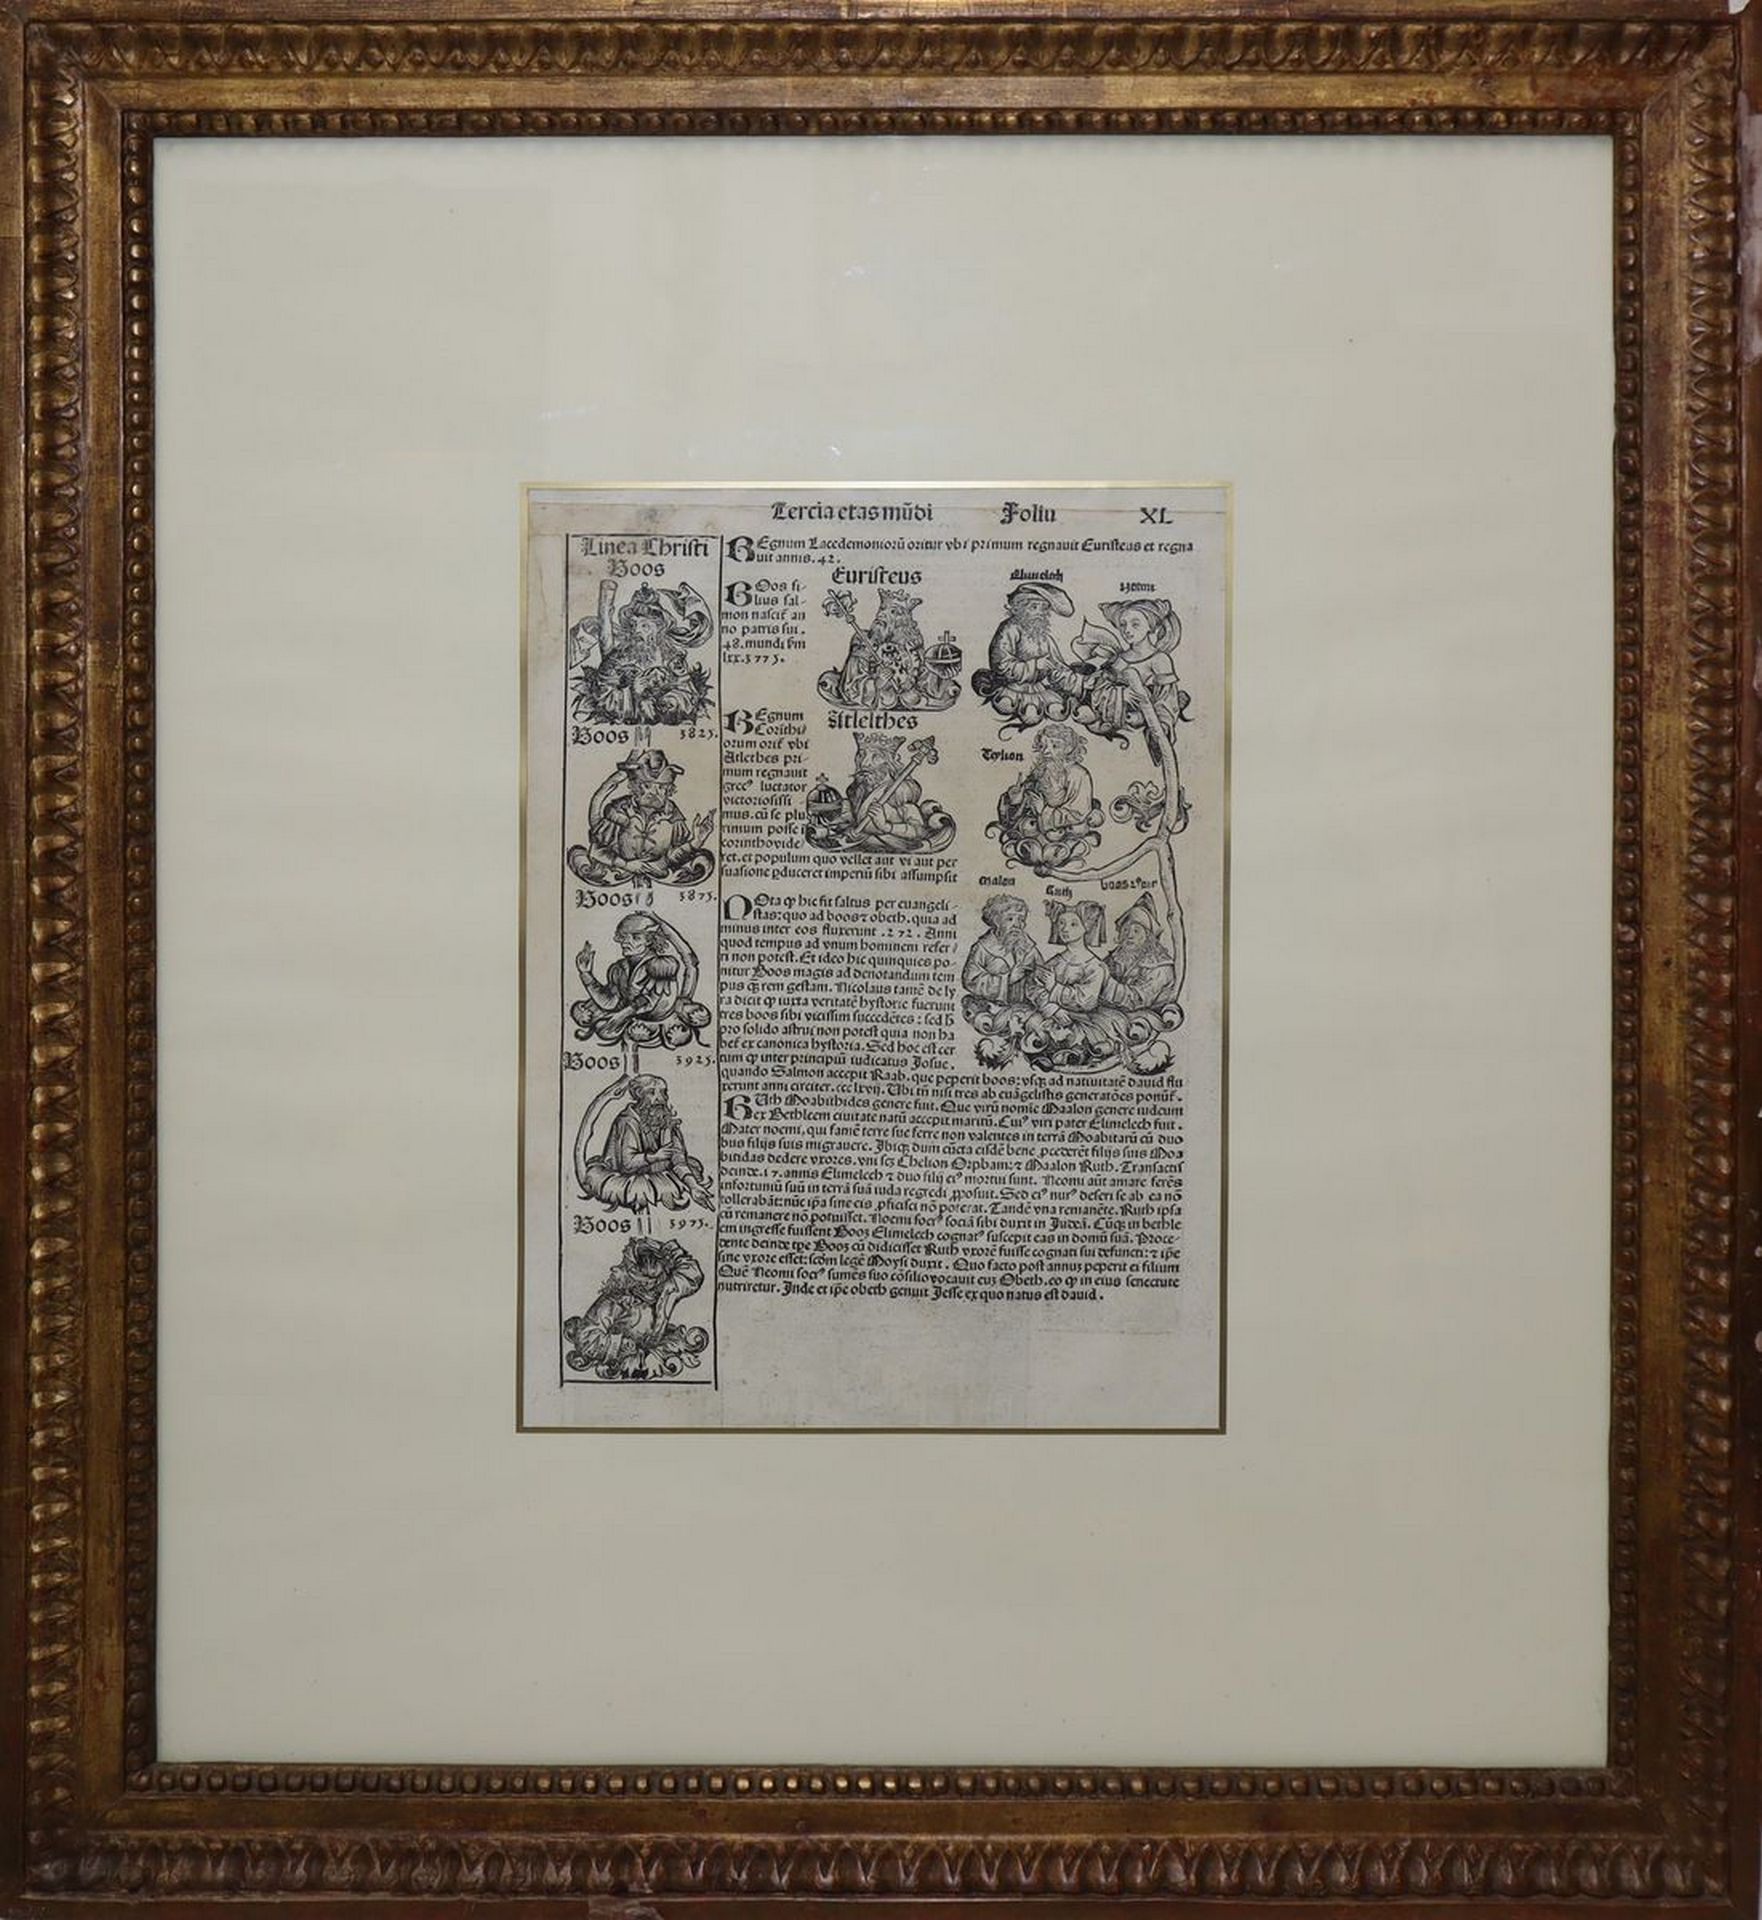 Tercia etas mūdi Foliu XL
Linea Christi
Boos
Boos 3825.
Boos 3875.
Boos 3925.
Boos 3975.
REgnum Lacedemoniorū oritur vbi primum regnauit Euristeus et regna
uit annis .42.
Euristeus
BOos fi-
lius sal-
mon nascit̄ an
no patris sui.
48. mundi
lxx.3775.
REgnum
Corithi/
orum orit̄ vbi
Atlethes pri-
mum regnauit
grecꝰ luctator
victoriosissi-
mus. cū se plu
rimum posse i
corintho vide/
ret. et populum quo vellet aut vi aut per
suasione ꝑduceret imperiū sibi assumpsit
Atlelthes
Elimelech
Noemi
Maalon
Ruth
NOta ꝙ hic fit saltus per euangeli-
stas: quo ad boos ⁊ obeth. quia ad
minus inter eos fluxerunt .272. Anni
quod tempus ad vnum hominem refer/
ri non potest. Et ideo hic quinquies po-
nitur Boos magis ad denotandum tem
pus ꝙ̄ rem gestam. Nicolaus tamē de ly
ra dicit ꝙ iuxta veritatē hystorie fuerunt
tres boos sibi vicissim succedētes: sed h̄
pro solido astrui non potest quia non ha
bet̄ ex canonica hystoria. Sed hoc est cer
tum ꝙ inter principiū iudicatus Josue.
quando Salmon accepit Raab. que peperit boos: vsqꝫ ad natiuitatē dauid flu
xerunt anni circiter. ccc lxvij. Ubi tn̄ nisi tres ab euāgelistis generatōes ponūt̄.
RUth Moabithides genere fuit. Que virū nomīe Maalon genere iudeum
ex Bethleem ciuitate natū accepit maritū. Cuiꝰ viri pater Elimelech fuit.
Mater noemi, qui famē terre sue ferre non valentes in terrā Moabitarū cū duo
bus filijs suis migrauere. Ibiqꝫ dum cūcta eisdē bene ꝓcederēt filijs suis Moa
bitidas dedere vxores. vni scꝫ Chelion Orpham: ⁊ Maalon Ruth. Transactis
deinde .17. annis Elimelech ⁊ duo filij eiꝰ mortui sunt. Neomi aūt amare ferēs
infortuniū suū in terrā suā iuda regredi ꝓposuit. Sed eiꝰ nurꝰ deseri se ab ea nō
tollerabāt: nūc ip̄a sine eis ꝓficisci nō poterat. Tandē vna remanēte. Ruth ipsa
cū remanere nō potuisset. Noemi socrꝰ sociā sibi duxit in Judeā. Cūqꝫ in bethle
em ingresse fuissent Booz Elimelech cognatꝰ suscepit eas in domū suā. Proce-
dente deinde tp̄e Booz cū didicisset Ruth vxorē fuisse cognati sui defuncti: ⁊ ip̄e
sine vxore esset: scd̄m legē Moysi duxit. Quo facto post annuꝫ peperit ei filium
Quē Neomi socrꝰ sumēs suo cōsilio vocauit euꝫ Obeth. eo ꝙ in eius senectute
nutriretur. Inde et ip̄e obeth genuit Jesse ex quo natus est dauid.